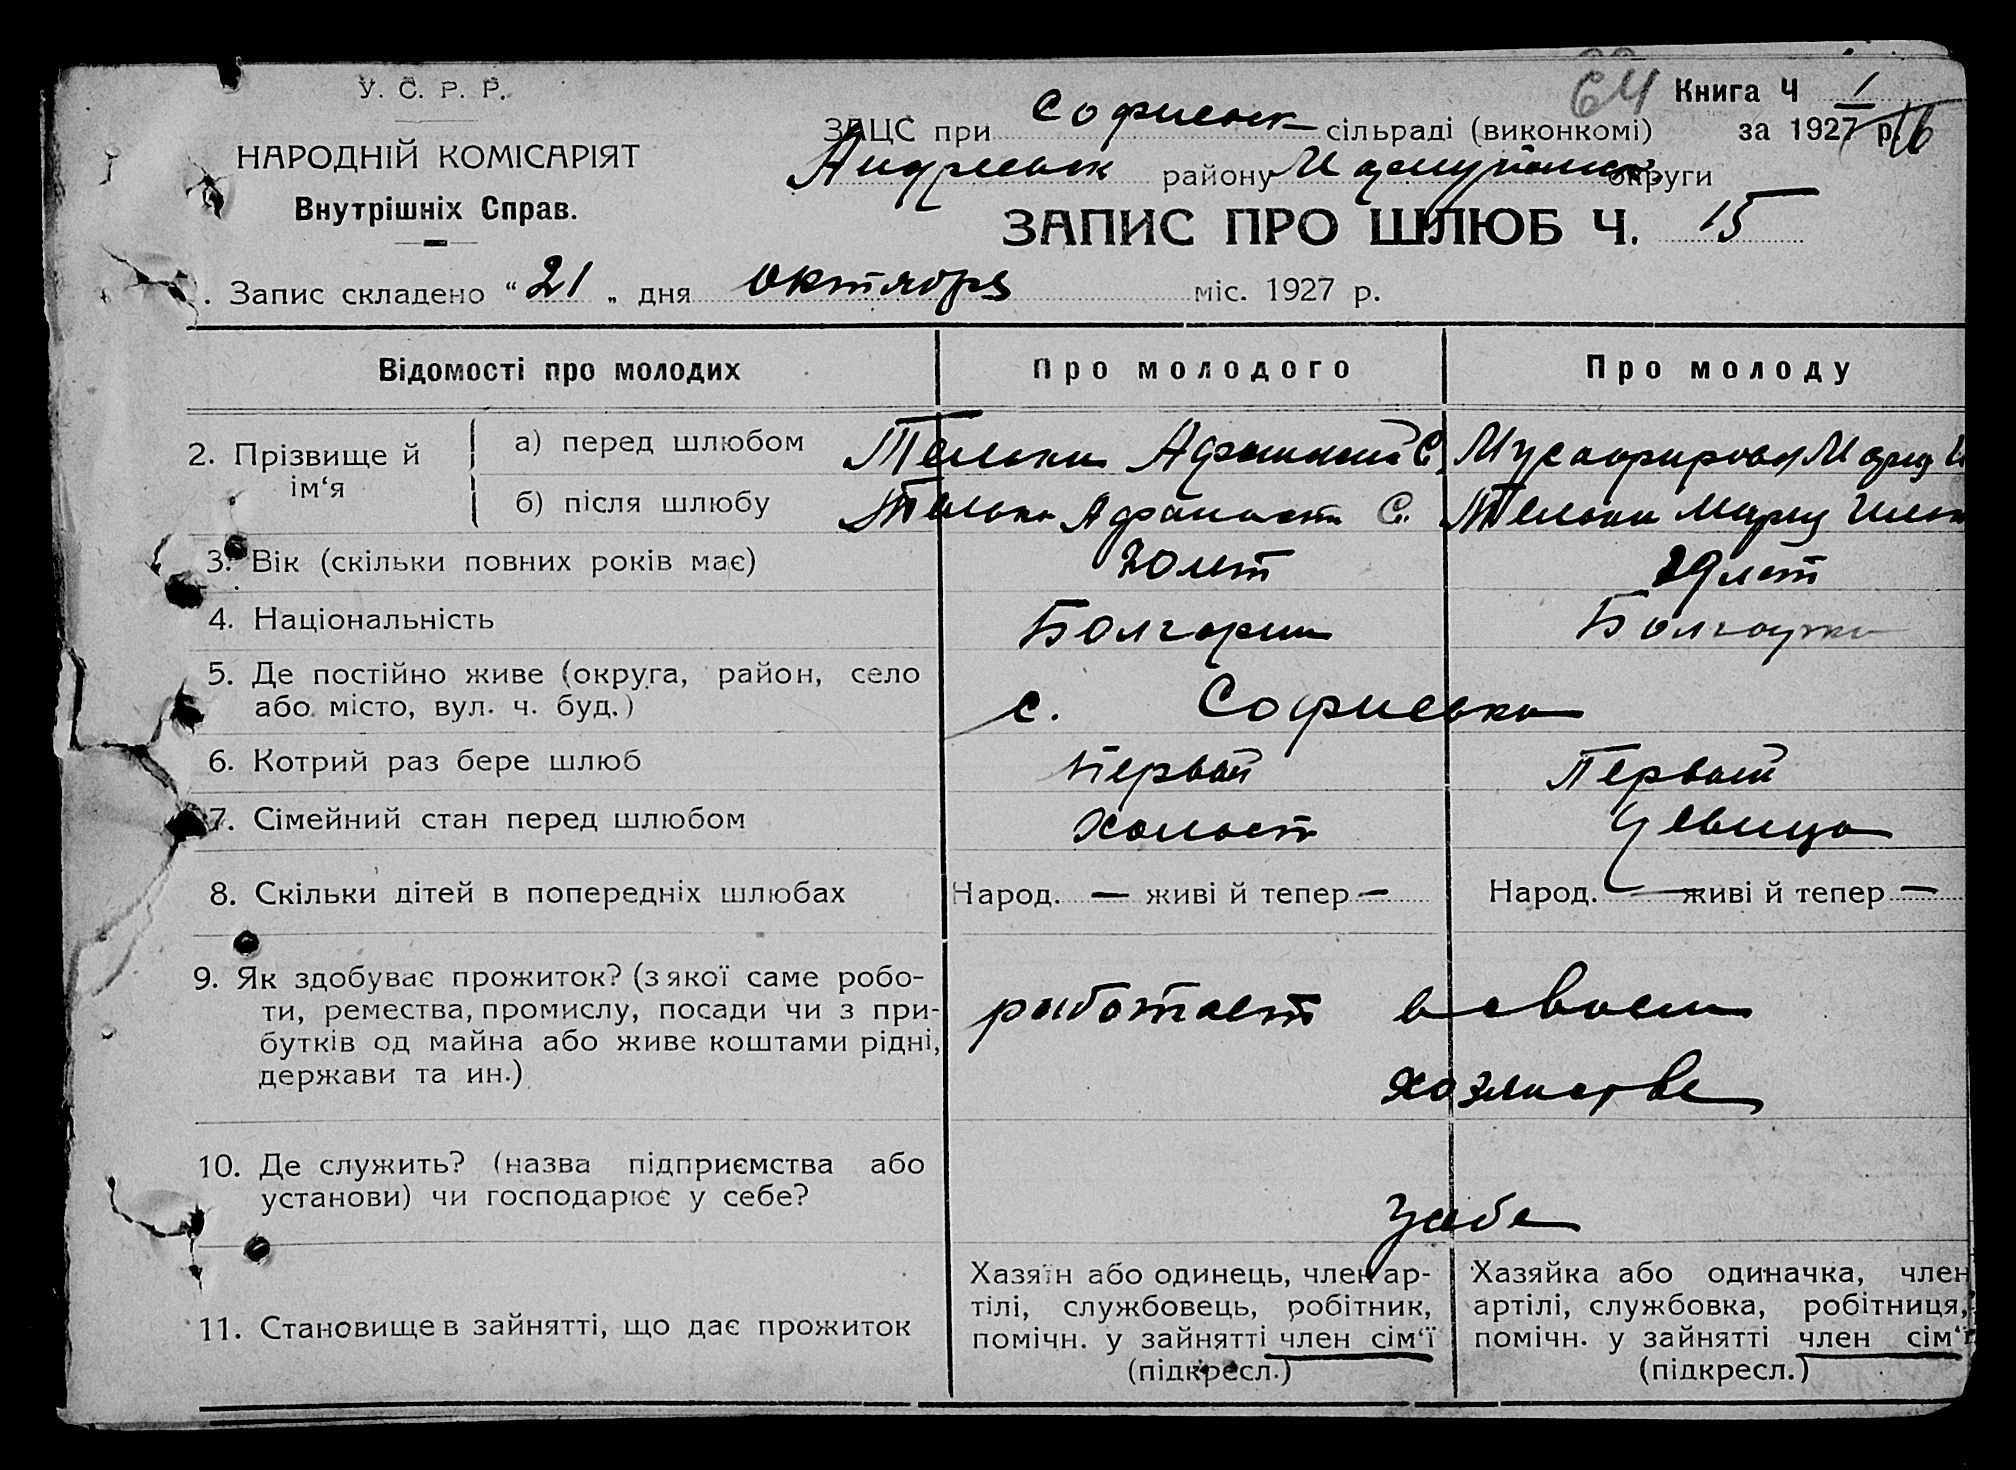 У. С. Р. Р.
НАРОДНІЙ КОМІСАРІЯТ
Внутрішніх Справ.
64 Книга Ч 1
ЗАЦС при Софиевск сільраді (виконкомі) за 1927 р.
Андреевск району округи
ЗАПИС ПРО ШЛЮБ Ч. 15
. Запис складено “ 21 „ дня октября міс. 1927 р.
Відомості про молодих Про молодого Про молоду
2. Прізвище й ім‘я
а) перед шлюбом С. Мария
б) після шлюбу С. Мария
3. Вік (скільки повних років має) 20 лет 19 лет
4. Національність Болгарин Болгарка
5. Де постійно живе (округа, район, село
або місто, вул. ч. буд.) с. Софиевка
6. Котрий раз бере шлюб первый Первый
7. Сімейний стан перед шлюбом Холост девица
8. Скільки дітей в попередніх шлюбах Народ. — живі й тепер — Народ. — живі й тепер —
9. Як здобуває прожиток? (з якої саме робо-
ти, ремества, промислу, посади чи з при-
бутків од майна або живе коштами рідні,
держави та ин.)
работает в своем
хозяистве
10. Де служить? (назва підприємства або
установи) чи господарює у себе?
У себе
11. Становище в зайнятті, що дає прожиток
Хазяїн або одинець, член ар-
тілі, службовець, робітник,
помічн. у зайнятті член сім‘ї
(підкресл.)
Хазяйка або одиначка, член
артілі, службовка, робітниця,
помічн. у зайнятті член сім‘ї
(підкресл.)